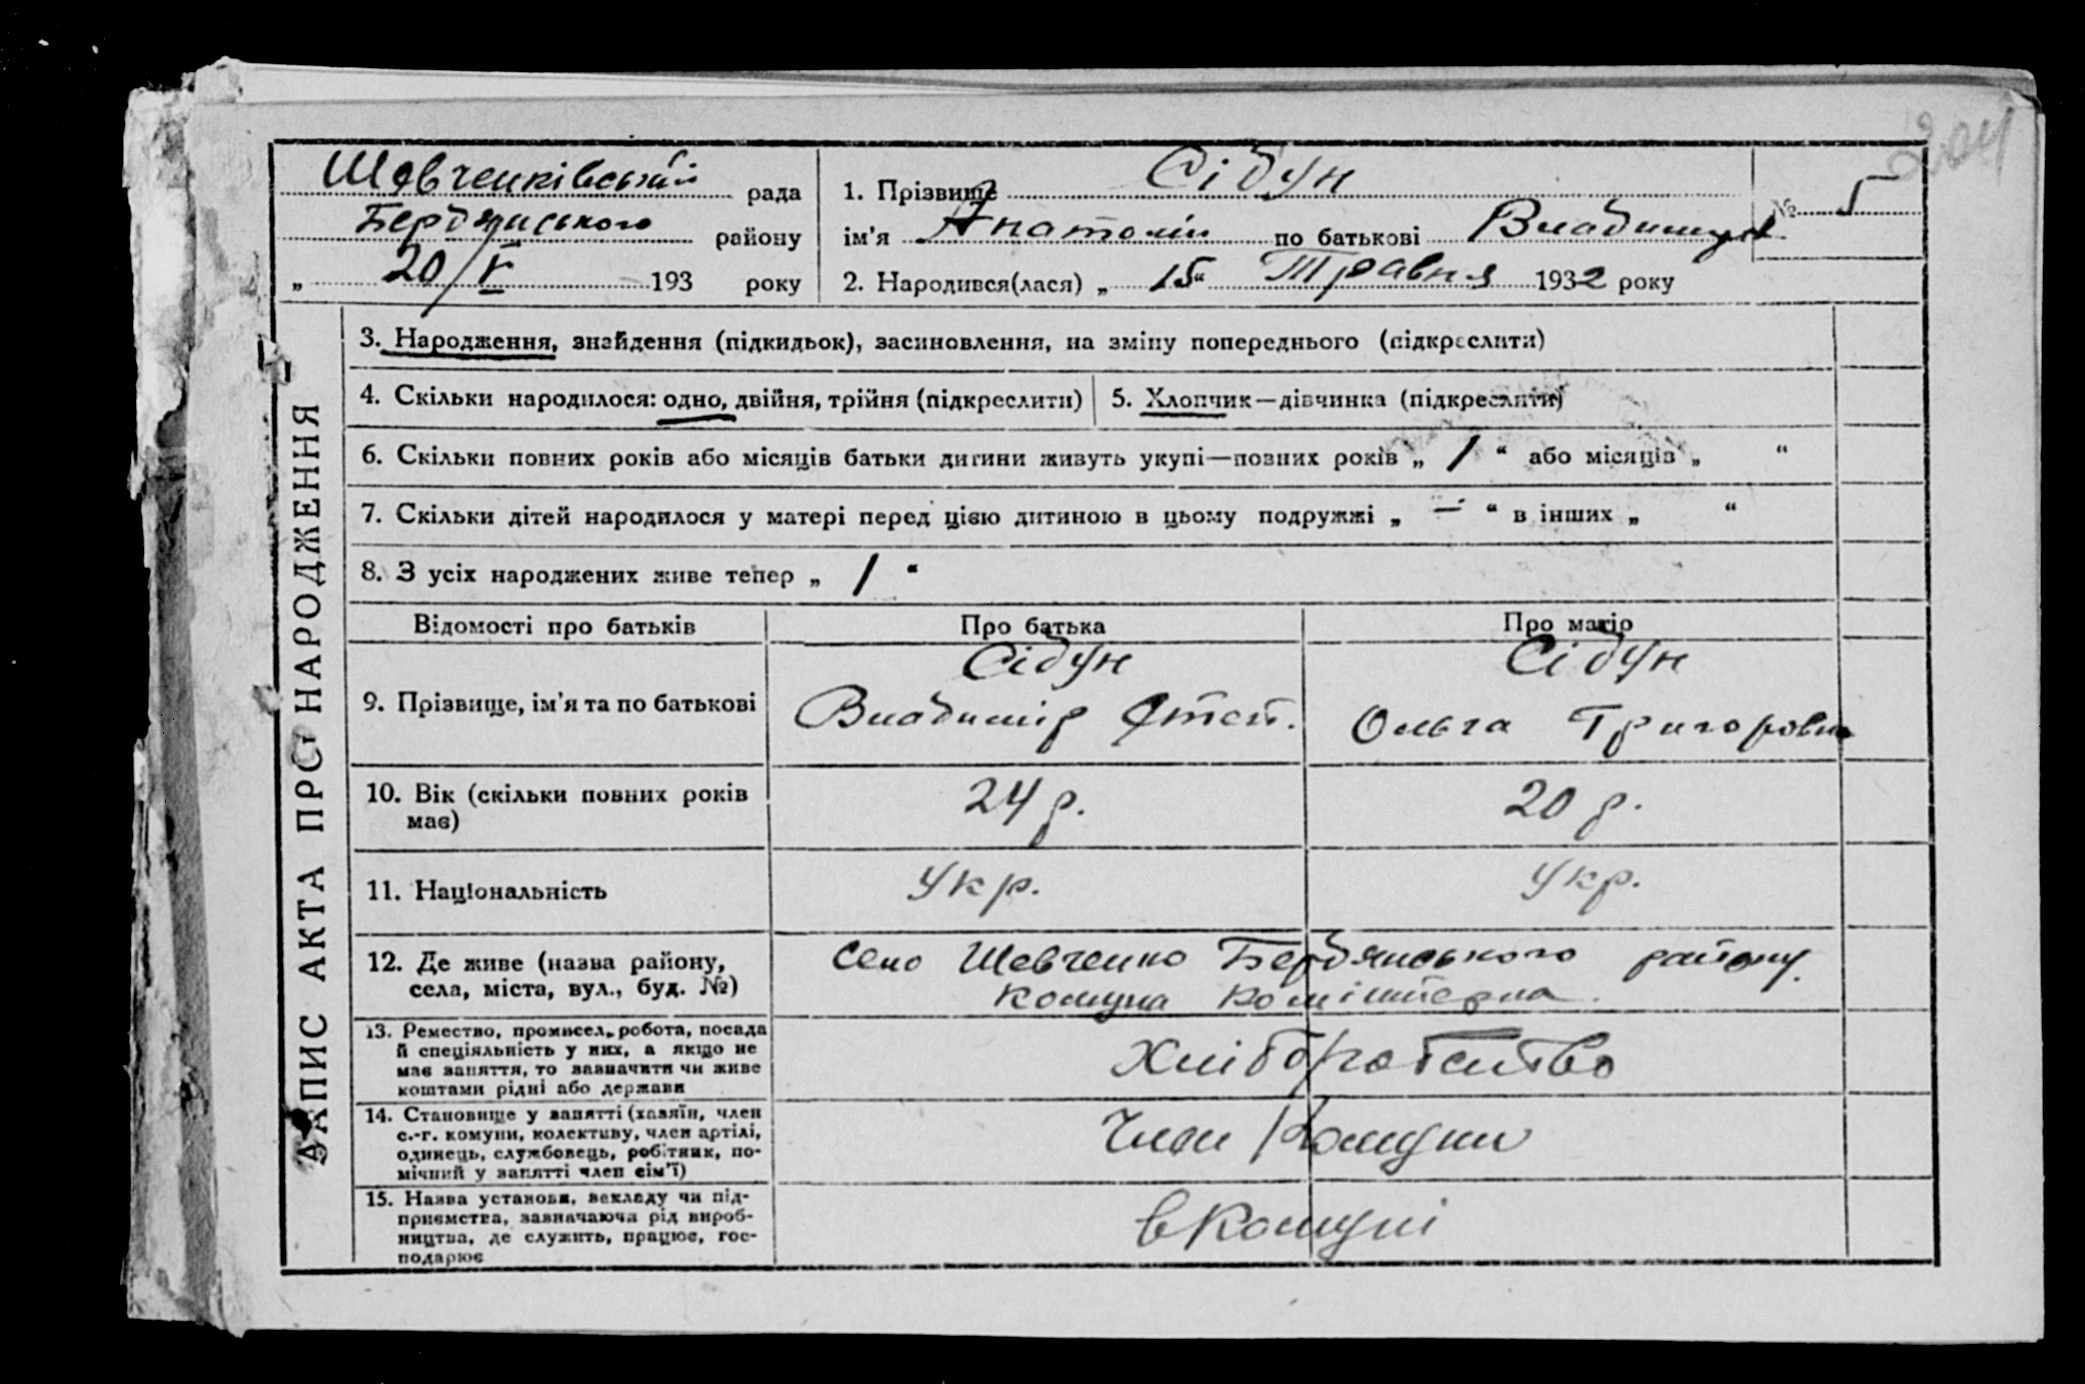 204
Шевченківський рада
Бердянського району
„ 20/V 193 року
1. Прізвище Сідун
№ 5
ім'я Анатолій по батькові Владимир
2. Народився(лася) „ 15 “ Травня 1932 року
ЗАПИС АКТА ПРО НАРОДЖЕННЯ
3. Народження, знайдення (підкидьок), засиновлення, на зміну попереднього (підкреслити)
4. Скільки народилося: одно, двійня, трійня (підкреслити)
5. Хлопчик—дівчинка (підкреслити)
6. Скільки повних років або місяців батьки дитини живуть укупі—повних років „ 1 “ або місяців „ “
7. Скільки дітей народилося у матері перед цією дитиною в цьому подружжі „ — “ в інших „ “
8. З усіх народжених живе тепер „ 1 “
Відомості про батьків Про батька Про матір
9. Прізвище, ім'я та по батькові
Сідун
Владимір Степ.
Сідун
Ольга Григоровна
10. Вік (скільки повних років
має)
24 р.
20 р.
11. Національність
Укр.
Укр.
12. Де живе (назва району,
села, міста, вул., буд. №)
село Шевченко Бердянського району.
комуна комінтерна.
13. Ремество, промисел, робота, посада
й спеціяльність у них, а якщо не
має заняття, то зазначити чи живе
коштами рідні або держави
Хліборобство
14. Становище у занятті (хазяїн, член
с.-г. комуни, колективу, член артілі,
одинець, службовець, робітник, по-
мічний у занятті член сім'ї)
Член Комуни
15. Назва установи, закладу чи під-
приємства, зазначаючи рід вироб-
ництва, де служить, працює, гос-
подарює
в Комуні